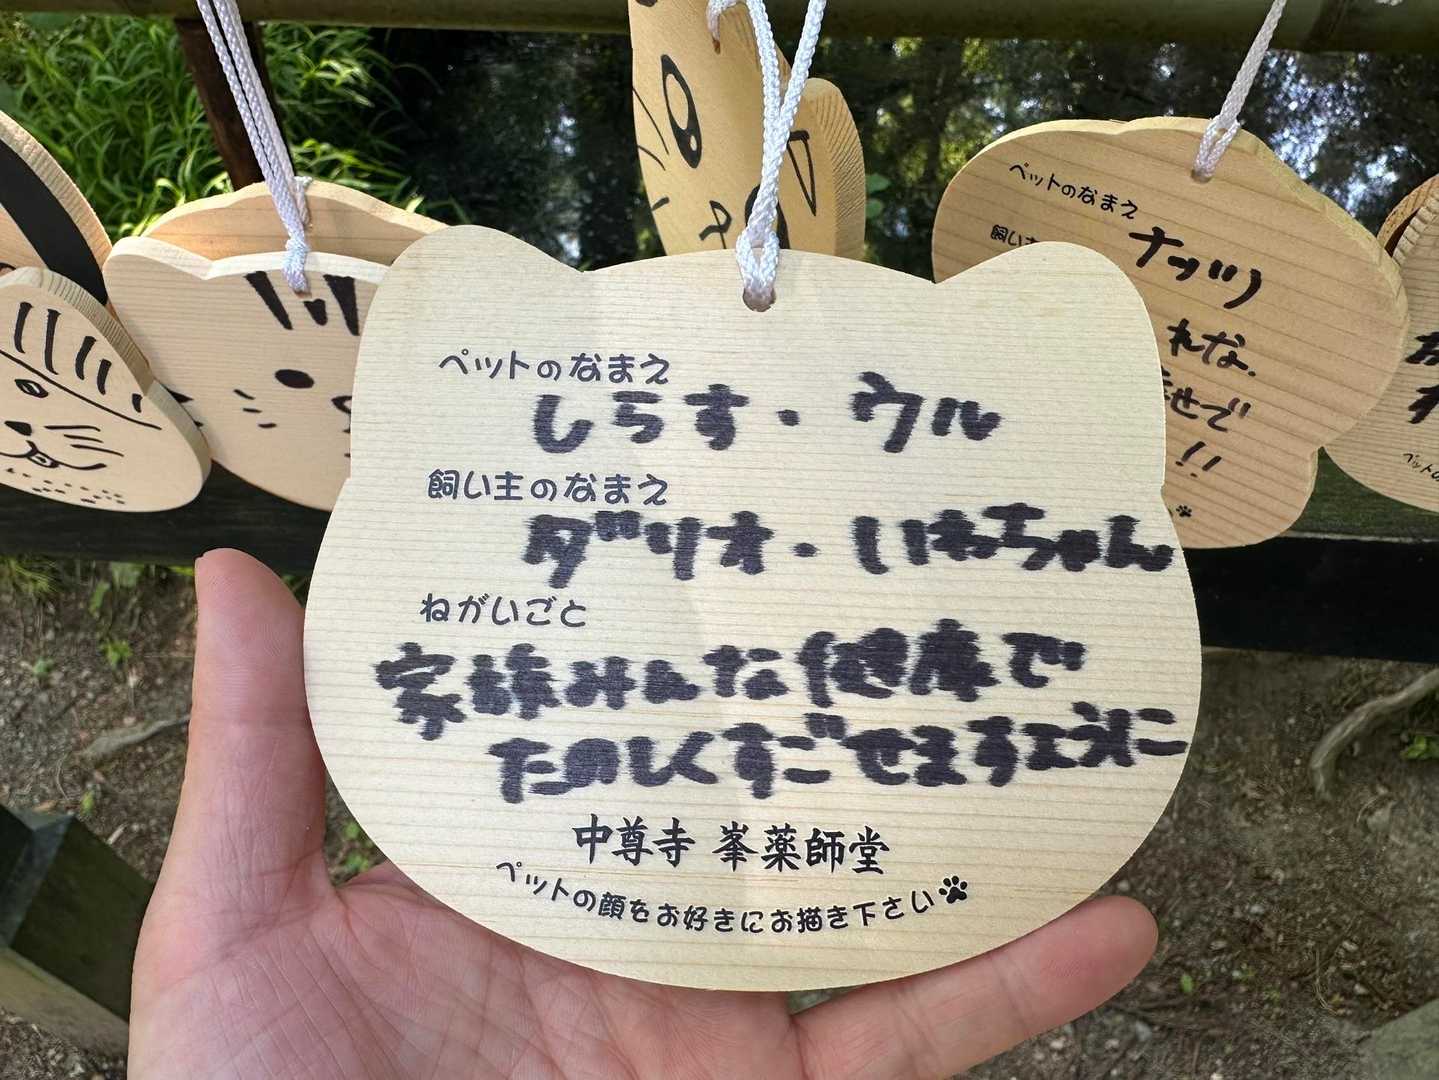 ペットのなまえ
しらす・ウル
飼い主のなまえ
ダリオ・いわちゃん
ねがいごと
家族みんな健康で
たのしくすごせますように
中尊寺 峯薬師堂
ペットの顔をお好きにお描き下さい
ペットのなまえ
ナッツ
飼い
れな.
せで
!!